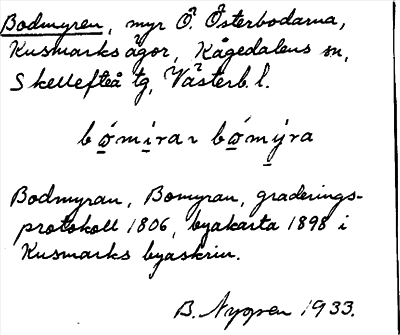 Bodmyren, myr Ö. Österbodarna,
Kusmarks ägor, Kågedalens sn,
Skellefteå tg, Västerb. l.
bǿmirar bǿmýra
Bodmyran, Bomyran, graderings-
protokoll 1806, byakarta 1898 i
Kusmarks byaskrin.
B. Nygren 1933.